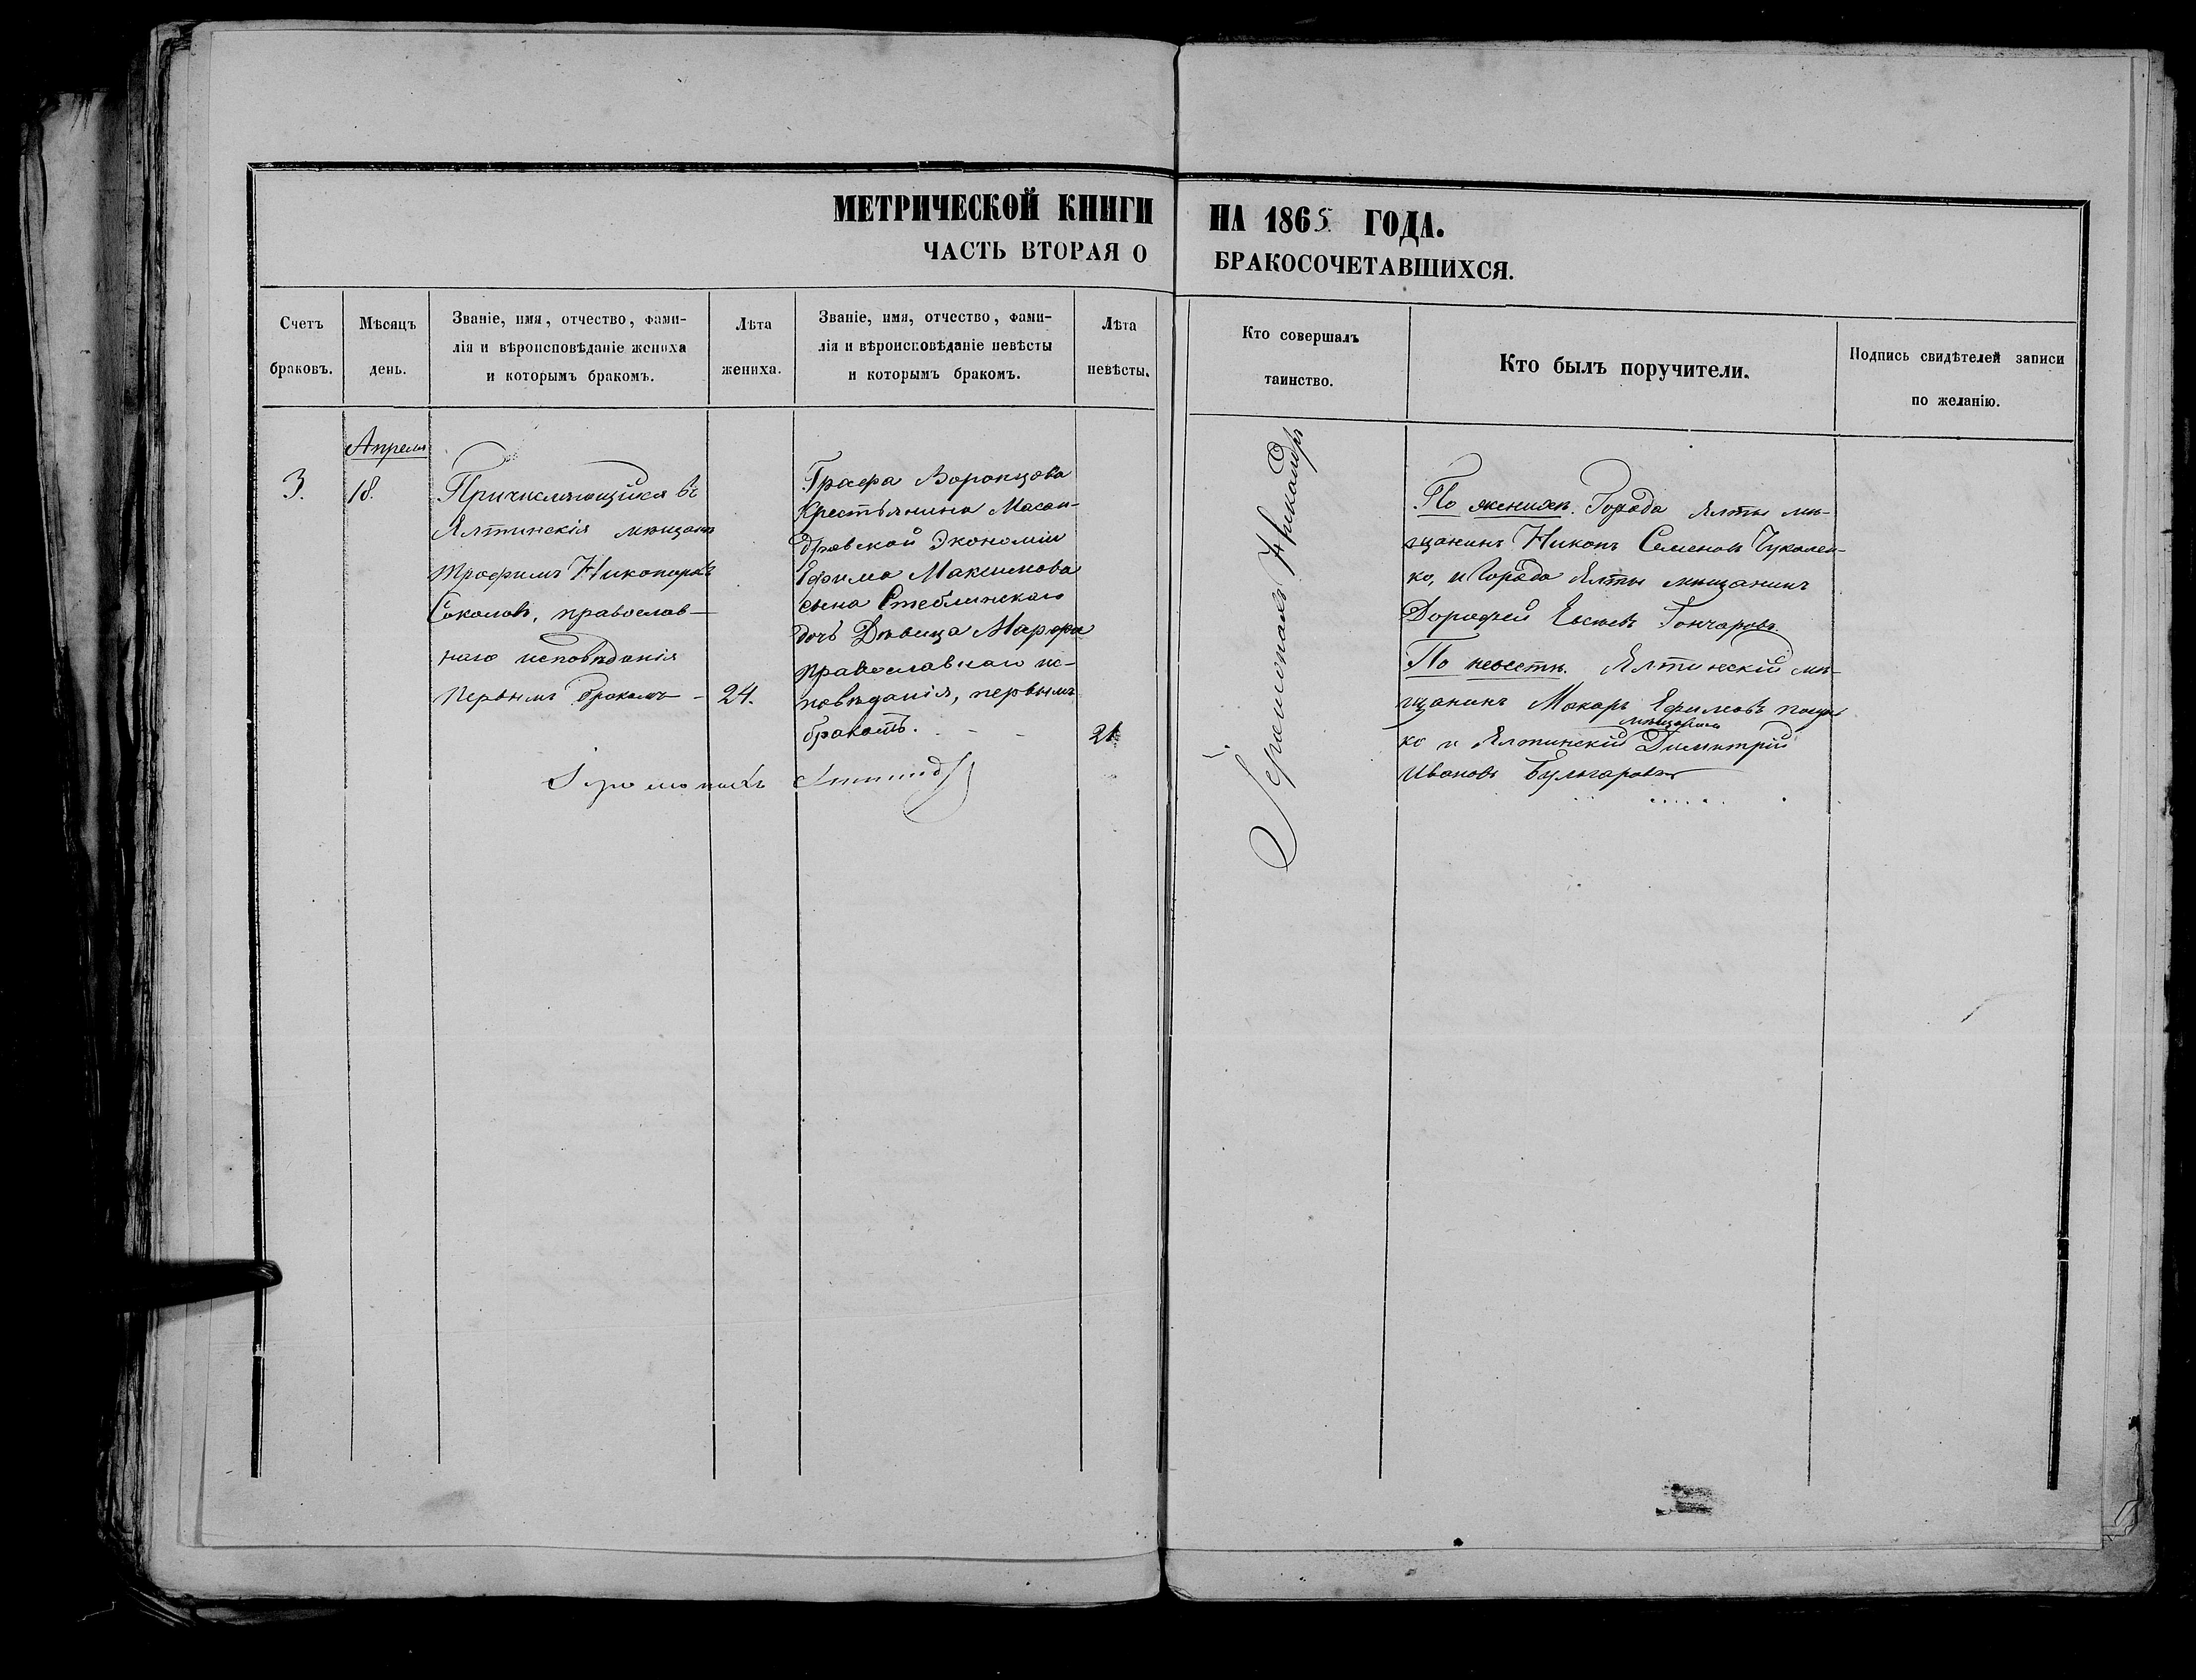 МЕТРИЧЕСКОЙ КНИГИ НА 1865 ГОДА.
ЧАСТЬ ВТОРАЯ О БРАКОСОЧЕТАВШИХСЯ.
Счетъ браковъ.
Мѣсяцъ день.
Званіе, имя, отчество, фами-
лія и вѣроисповѣданіе жениха
и которымъ бракомъ.
Лѣта жениха.
Званіе, имя, отчество, фами-
лія и вѣроисповѣданіе невѣсты
и которымъ бракомъ.
Лѣта невѣсты.
Кто совершалъ
таинство.
Кто былъ поручители.
Подпись свидѣтелей записи
по желанію.
3.
Апреля
18.
Причисляющійся въ
Ялтинскія мѣщане
Трофимъ Никоноровъ
Соколовъ, православ-
наго исповѣданія
первымъ бракомъ
24.
Графа Воронцова
крестьянина Масан-
дровской Экономіи
Ефима Максимова
сына Стеблинскаго
дочь Дѣвица Марфа
православнаго ис-
повѣданія, первымъ
бракомъ.
21
Іеромонахъ
Іеромонахъ Никандръ
По женихѣ. Города Ялты мѣ-
щанинъ Никонъ Семеновъ Чукален-
ко, и Города Ялты мѣщанинъ
Дорофей Евсеевъ Гончаровъ.
По невѣстѣ. Ялтинскій мѣ-
щанинъ Макаръ Ефимовъ
ко и Ялтинскій мѣщанинъ Димитрій
Ивановъ Булгаровъ